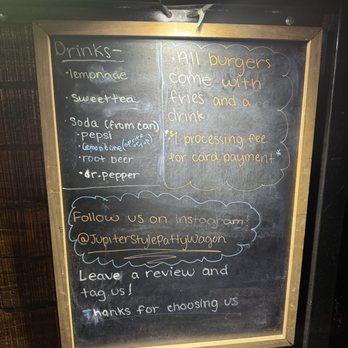 Drinks-
·lemonade
·sweet tea
Soda (from can)
·pepsi
·root beer
·dr.pepper
·All burgers
come with
fries and a
drink
*$1 processing fee
for card payment*
Follow us on Instagram!
@JupiterStylePattyWagon
Leave a review and
tag us!
Thanks for choosing us